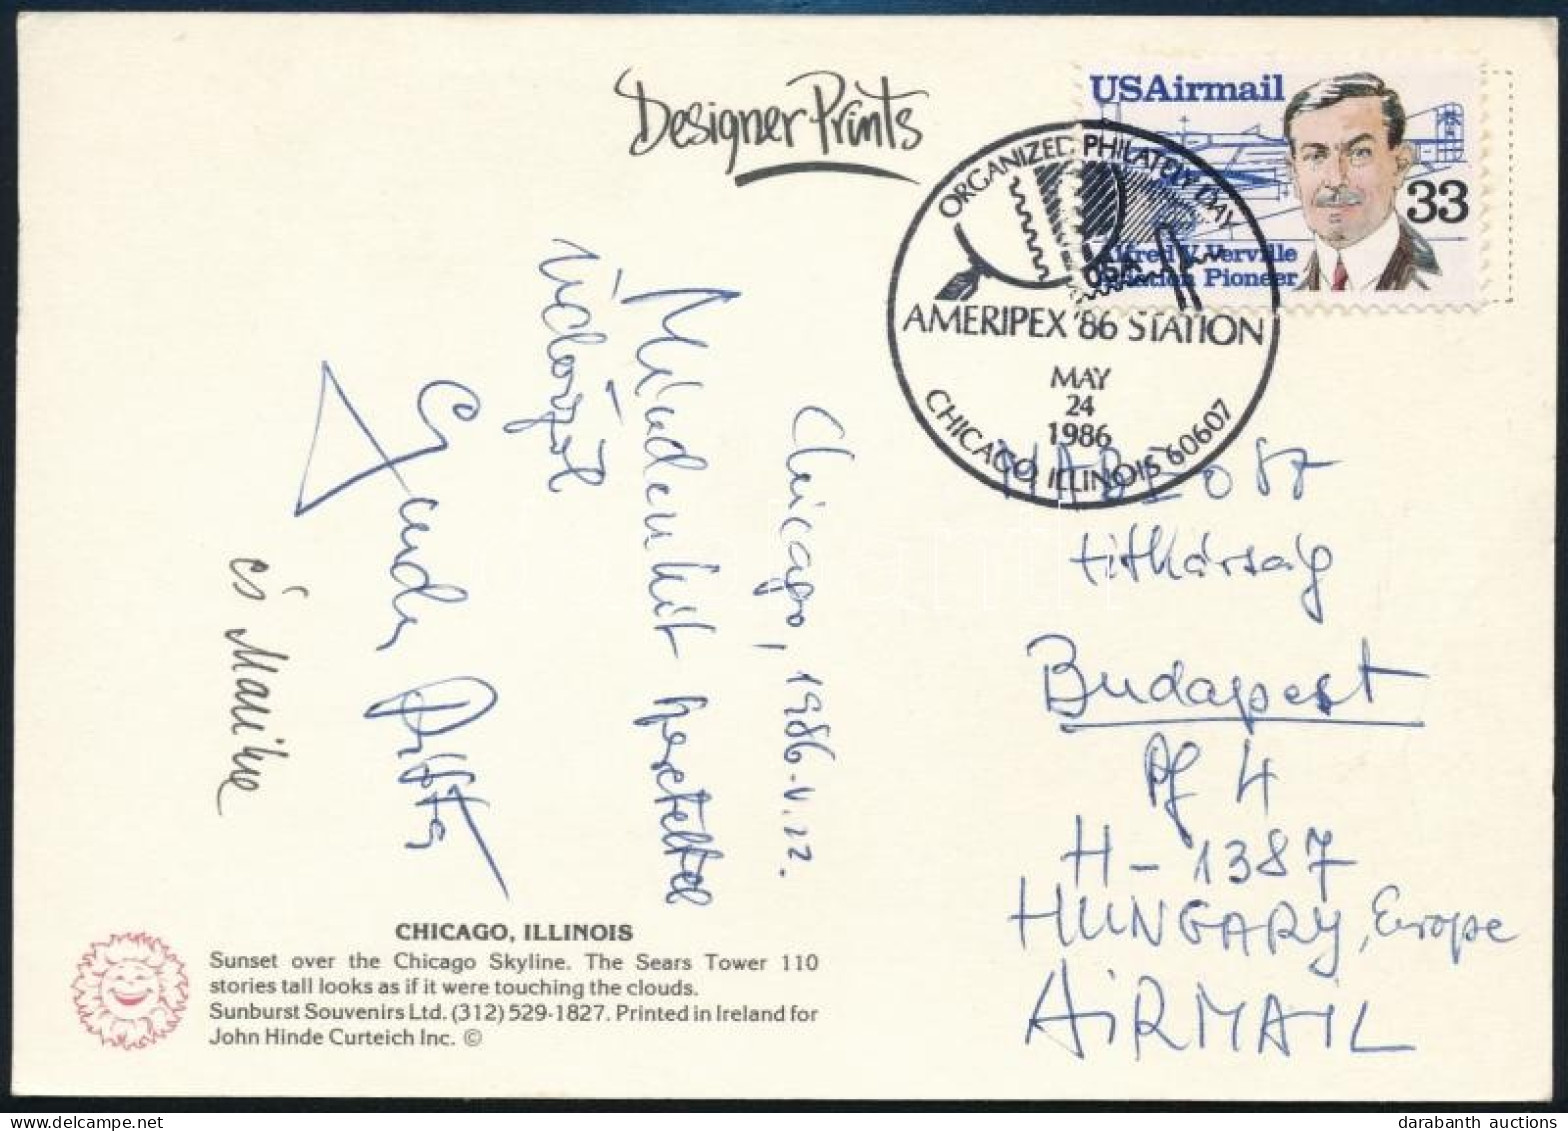 Designer Prints
USAirmail
33
Alfred V. Verville
Aviation Pioneer
ORGANIZED PHILATELY DAY
USA
AMERIPEX '86 STATION
MAY
24
1986
CHICAGO, ILLINOIS 60607
Chicago, 1986.V.22.
Mindenkit szeretettel
üdvözöl
és Manike
087
titkárság
Budapest
Pf 4
H-1387
HUNGARY, Europe
AiRMAIL
CHICAGO, ILLINOIS
Sunset over the Chicago Skyline. The Sears Tower 110
stories tall looks as if it were touching the clouds.
Sunburst Souvenirs Ltd. (312) 529-1827. Printed in Ireland for
John Hinde Curteich Inc. ©
darabanth auctions